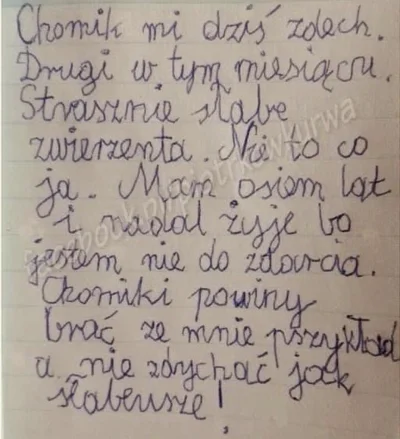 Chomik mi dziś zdech.
Drugi w tym miesiącu.
Strasznie słabe
zwierzenta. Nie to co
ja. Mam osiem lat
i nadal żyje bo
jestem nie do zdarcia.
Chomiki powiny
brać ze mnie pszykład
a nie zdychać jak
słabeusze!
facebook.pl/piotrkowkurwa